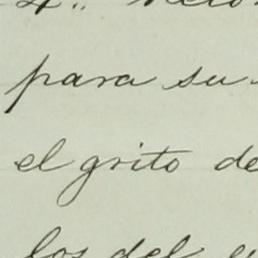 para su
el grito de
los del